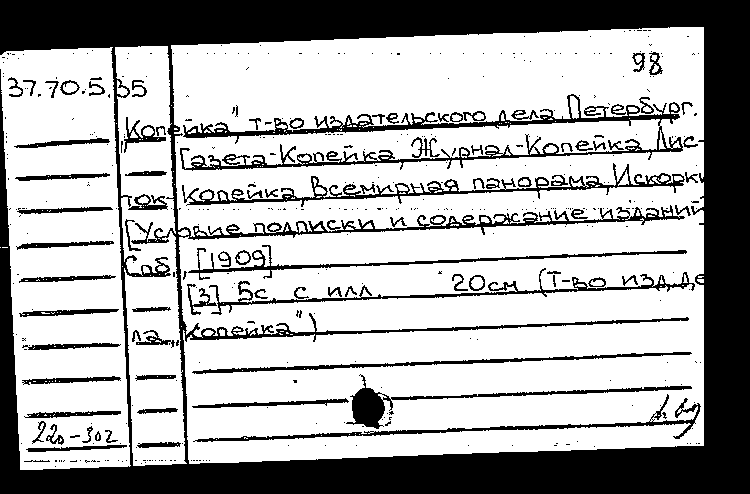 98
37.70.5.35
„Копейка", т-во издательского дела. Петербург.
Газета-Копейка, Журнал-Копейка, Лис-
ток-Копейка, Всемирная панорама, Искорки
[Условие подписки и содержание изданий
Спб., [1909]
[3], 5с. с илл. 20см (Т-во изд. де
ла „Копейка")
220-302